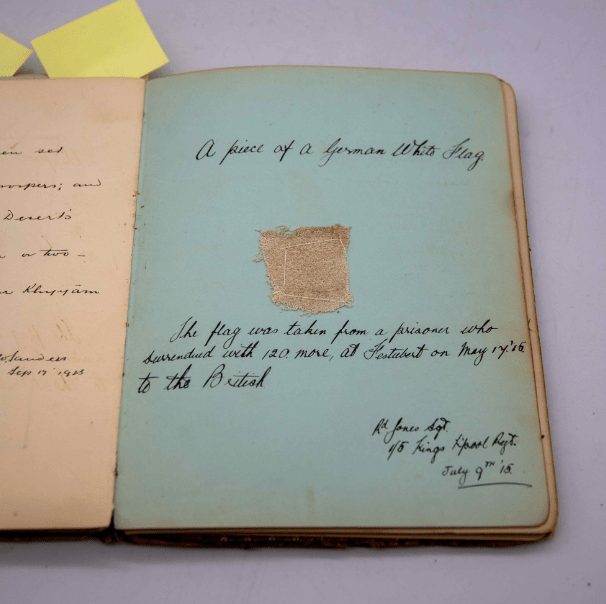 en set
oopers; and
Desert's
a two -
r Khayyám
Sep 17 1923
A piece of a German White Flag.
The flag was taken from a prisoner who
surrendered with 120 more, at Festubert on May 17.'15
to the British
Rd Jones Sgt.
1/5 Kings L'pool Regt.
July 9th '15.